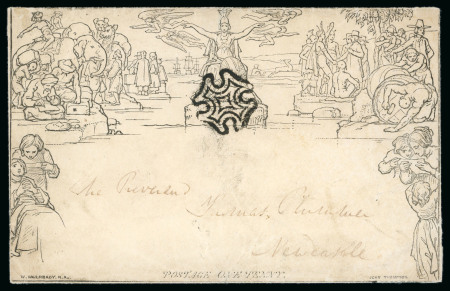 The Reverend
Thomas
Newcastle
W. MULREADY. R.A.
POSTAGE ONE PENNY.
JOHN THOMPSON